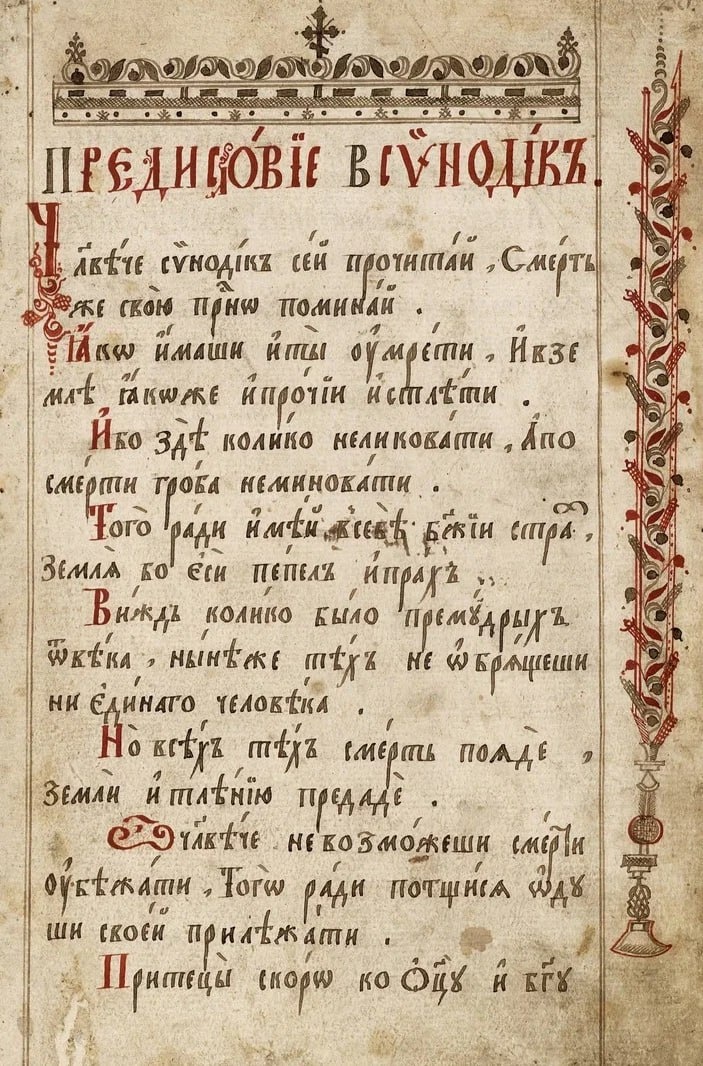 ПРЕДИСЛО́ВЇЕ В СѴ́НОДІ́КЪ.
Чл҃вѣ́че сѵ́ноді́къ се́й прочита́й, Сме́рть
же свою̀ при҇нѡ помина́й .
Ꙗ҆́кѡ и҆́маши и҆ ты̀ ᲂу҆мре́ти, И҆ в зе
млѣ̀ ꙗ҆́коже и҆ про́чїи и҆стлѣ́ти .
И҆́бо здѣ̀ коли́ко не ликова́ти, А҆ по
сме́рти гро́ба не минова́ти .
Того̀ ра́ди и҆мѣ́й в себѣ̀ бж҃їй стра́,
Землѧ̀ бо є҆сѝ пе́пелъ и҆ пра́хъ
Ви́ждь коли́ко бы́ло прему́дрыхъ
ѿ вѣ́ка, ны́нѣ же тѣ́хъ не ѡ҆брѧ́щеши
ни є҆ди́наго человѣ́ка .
Но всѣ́хъ тѣ́хъ сме́рть поѧдѐ ,
землѝ и҆ тлѣ́нїю предадѐ .
Ѽ чл҃вѣ́че не возмо́жеши сме́рти
ᲂу҆бѣжа́ти, Того̀ ра́ди потщи́сѧ ѡ҆ дꙋ
ши свое́й прилѣжа́ти .
Притецы̀ ско́рѡ ко Ѻ҆ц҃ꙋ и҆ бг҃ꙋ